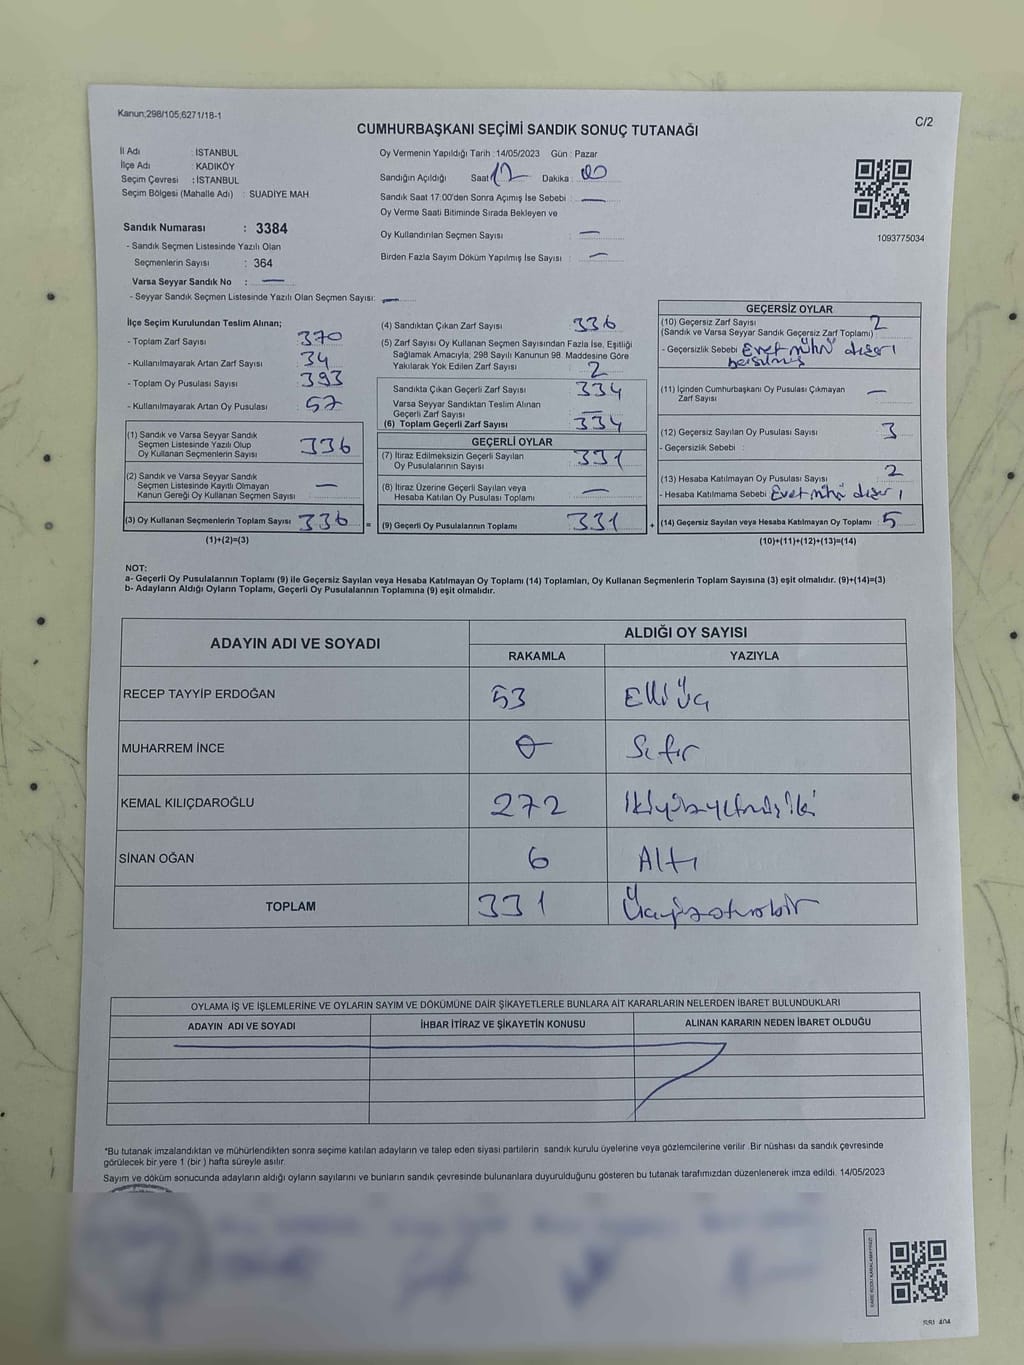 Kanun;298/105,6271/18-1
C/2
CUMHURBAŞKANI SEÇİMİ SANDIK SONUÇ TUTANAĞI
İl Adı : İSTANBUL
İlçe Adı : KADIKÖY
Seçim Çevresi : İSTANBUL
Seçim Bölgesi (Mahalle Adı) : SUADİYE MAH
Oy Vermenin Yapıldığı Tarih :14/05/2023 Gün : Pazar
Sandığın Açıldığı Saat Dakika : 00
Sandık Saat 17:00'den Sonra Açımış İse Sebebi : —
Oy Verme Saati Bitiminde Sırada Bekleyen ve
Oy Kullandırılan Seçmen Sayısı : —
Birden Fazla Sayım Döküm Yapılmış İse Sayısı : —
1093775034
Sandık Numarası : 3384
- Sandık Seçmen Listesinde Yazılı Olan
Seçmenlerin Sayısı : 364
Varsa Seyyar Sandık No : —
- Seyyar Sandık Seçmen Listesinde Yazılı Olan Seçmen Sayısı: —
İlçe Seçim Kurulundan Teslim Alınan;
- Toplam Zarf Sayısı : 370
- Kullanılmayarak Artan Zarf Sayısı : 34
- Toplam Oy Pusulası Sayısı : 393
- Kullanılmayarak Artan Oy Pusulası : 57
(1) Sandık ve Varsa Seyyar Sandık
Seçmen Listesinde Yazılı Olup
Oy Kullanan Seçmenlerin Sayısı : 336
(2) Sandık ve Varsa Seyyar Sandık
Seçmen Listesinde Kayıtlı Olmayan
Kanun Gereği Oy Kullanan Seçmen Sayısı : —
(3) Oy Kullanan Seçmenlerin Toplam Sayısı : 336 =
(1)+(2)=(3)
(4) Sandıktan Çıkan Zarf Sayısı : 336
(5) Zarf Sayısı Oy Kullanan Seçmen Sayısından Fazla İse, Eşitliği
Sağlamak Amacıyla; 298 Sayılı Kanunun 98. Maddesine Göre
Yakılarak Yok Edilen Zarf Sayısı : 2
Sandıkta Çıkan Geçerli Zarf Sayısı : 334
Varsa Seyyar Sandıktan Teslim Alınan
Geçerli Zarf Sayısı : —
(6) Toplam Geçerli Zarf Sayısı : 334
GEÇERLİ OYLAR
(7) İtiraz Edilmeksizin Geçerli Sayılan
Oy Pusulalarının Sayısı : 331
(8) İtiraz Üzerine Geçerli Sayılan veya
Hesaba Katılan Oy Pusulası Toplamı : —
(9) Geçerli Oy Pusulalarının Toplamı : 331 +
GEÇERSİZ OYLAR
(10) Geçersiz Zarf Sayısı : 2
(Sandık ve Varsa Seyyar Sandık Geçersiz Zarf Toplamı)
- Geçersizlik Sebebi : Evet mührü dışarı
basılmış
(11) İçinden Cumhurbaşkanı Oy Pusulası Çıkmayan
Zarf Sayısı : —
(12) Geçersiz Sayılan Oy Pusulası Sayısı : 3
- Geçersizlik Sebebi :
(13) Hesaba Katılmayan Oy Pusulası Sayısı : 2
- Hesaba Katılmama Sebebi : Evet mührü dışarı
(14) Geçersiz Sayılan veya Hesaba Katılmayan Oy Toplamı : 5
(10)+(11)+(12)+(13)=(14)
NOT:
a- Geçerli Oy Pusulalarının Toplamı (9) ile Geçersiz Sayılan veya Hesaba Katılmayan Oy Toplamı (14) Toplamları, Oy Kullanan Seçmenlerin Toplam Sayısına (3) eşit olmalıdır. (9)+(14)=(3)
b- Adayların Aldığı Oyların Toplamı, Geçerli Oy Pusulalarının Toplamına (9) eşit olmalıdır.
ADAYIN ADI VE SOYADI
ALDIĞI OY SAYISI
RAKAMLA YAZIYLA
RECEP TAYYİP ERDOĞAN 53 Elli üç
MUHARREM İNCE 0 Sıfır
KEMAL KILIÇDAROĞLU 272 İkiyüzyetmişiki
SİNAN OĞAN 6 Altı
TOPLAM 331 Üçyüzotuzbir
OYLAMA İŞ VE İŞLEMLERİNE VE OYLARIN SAYIM VE DÖKÜMÜNE DAİR ŞİKAYETLERLE BUNLARA AİT KARARLARIN NELERDEN İBARET BULUNDUKLARI
ADAYIN ADI VE SOYADI İHBAR İTİRAZ VE ŞİKAYETİN KONUSU ALINAN KARARIN NEDEN İBARET OLDUĞU
*Bu tutanak imzalandıktan ve mühürlendikten sonra seçime katılan adayların ve talep eden siyasi partilerin sandık kurulu üyelerine veya gözlemcilerine verilir .Bir nüshası da sandık çevresinde
görülecek bir yere 1 (bir ) hafta süreyle asılır.
Sayım ve döküm sonucunda adayların aldığı oyların sayılarını ve bunların sandık çevresinde bulunanlara duyurulduğunu gösteren bu tutanak tarafımızdan düzenlenerek imza edildi. 14/05/2023